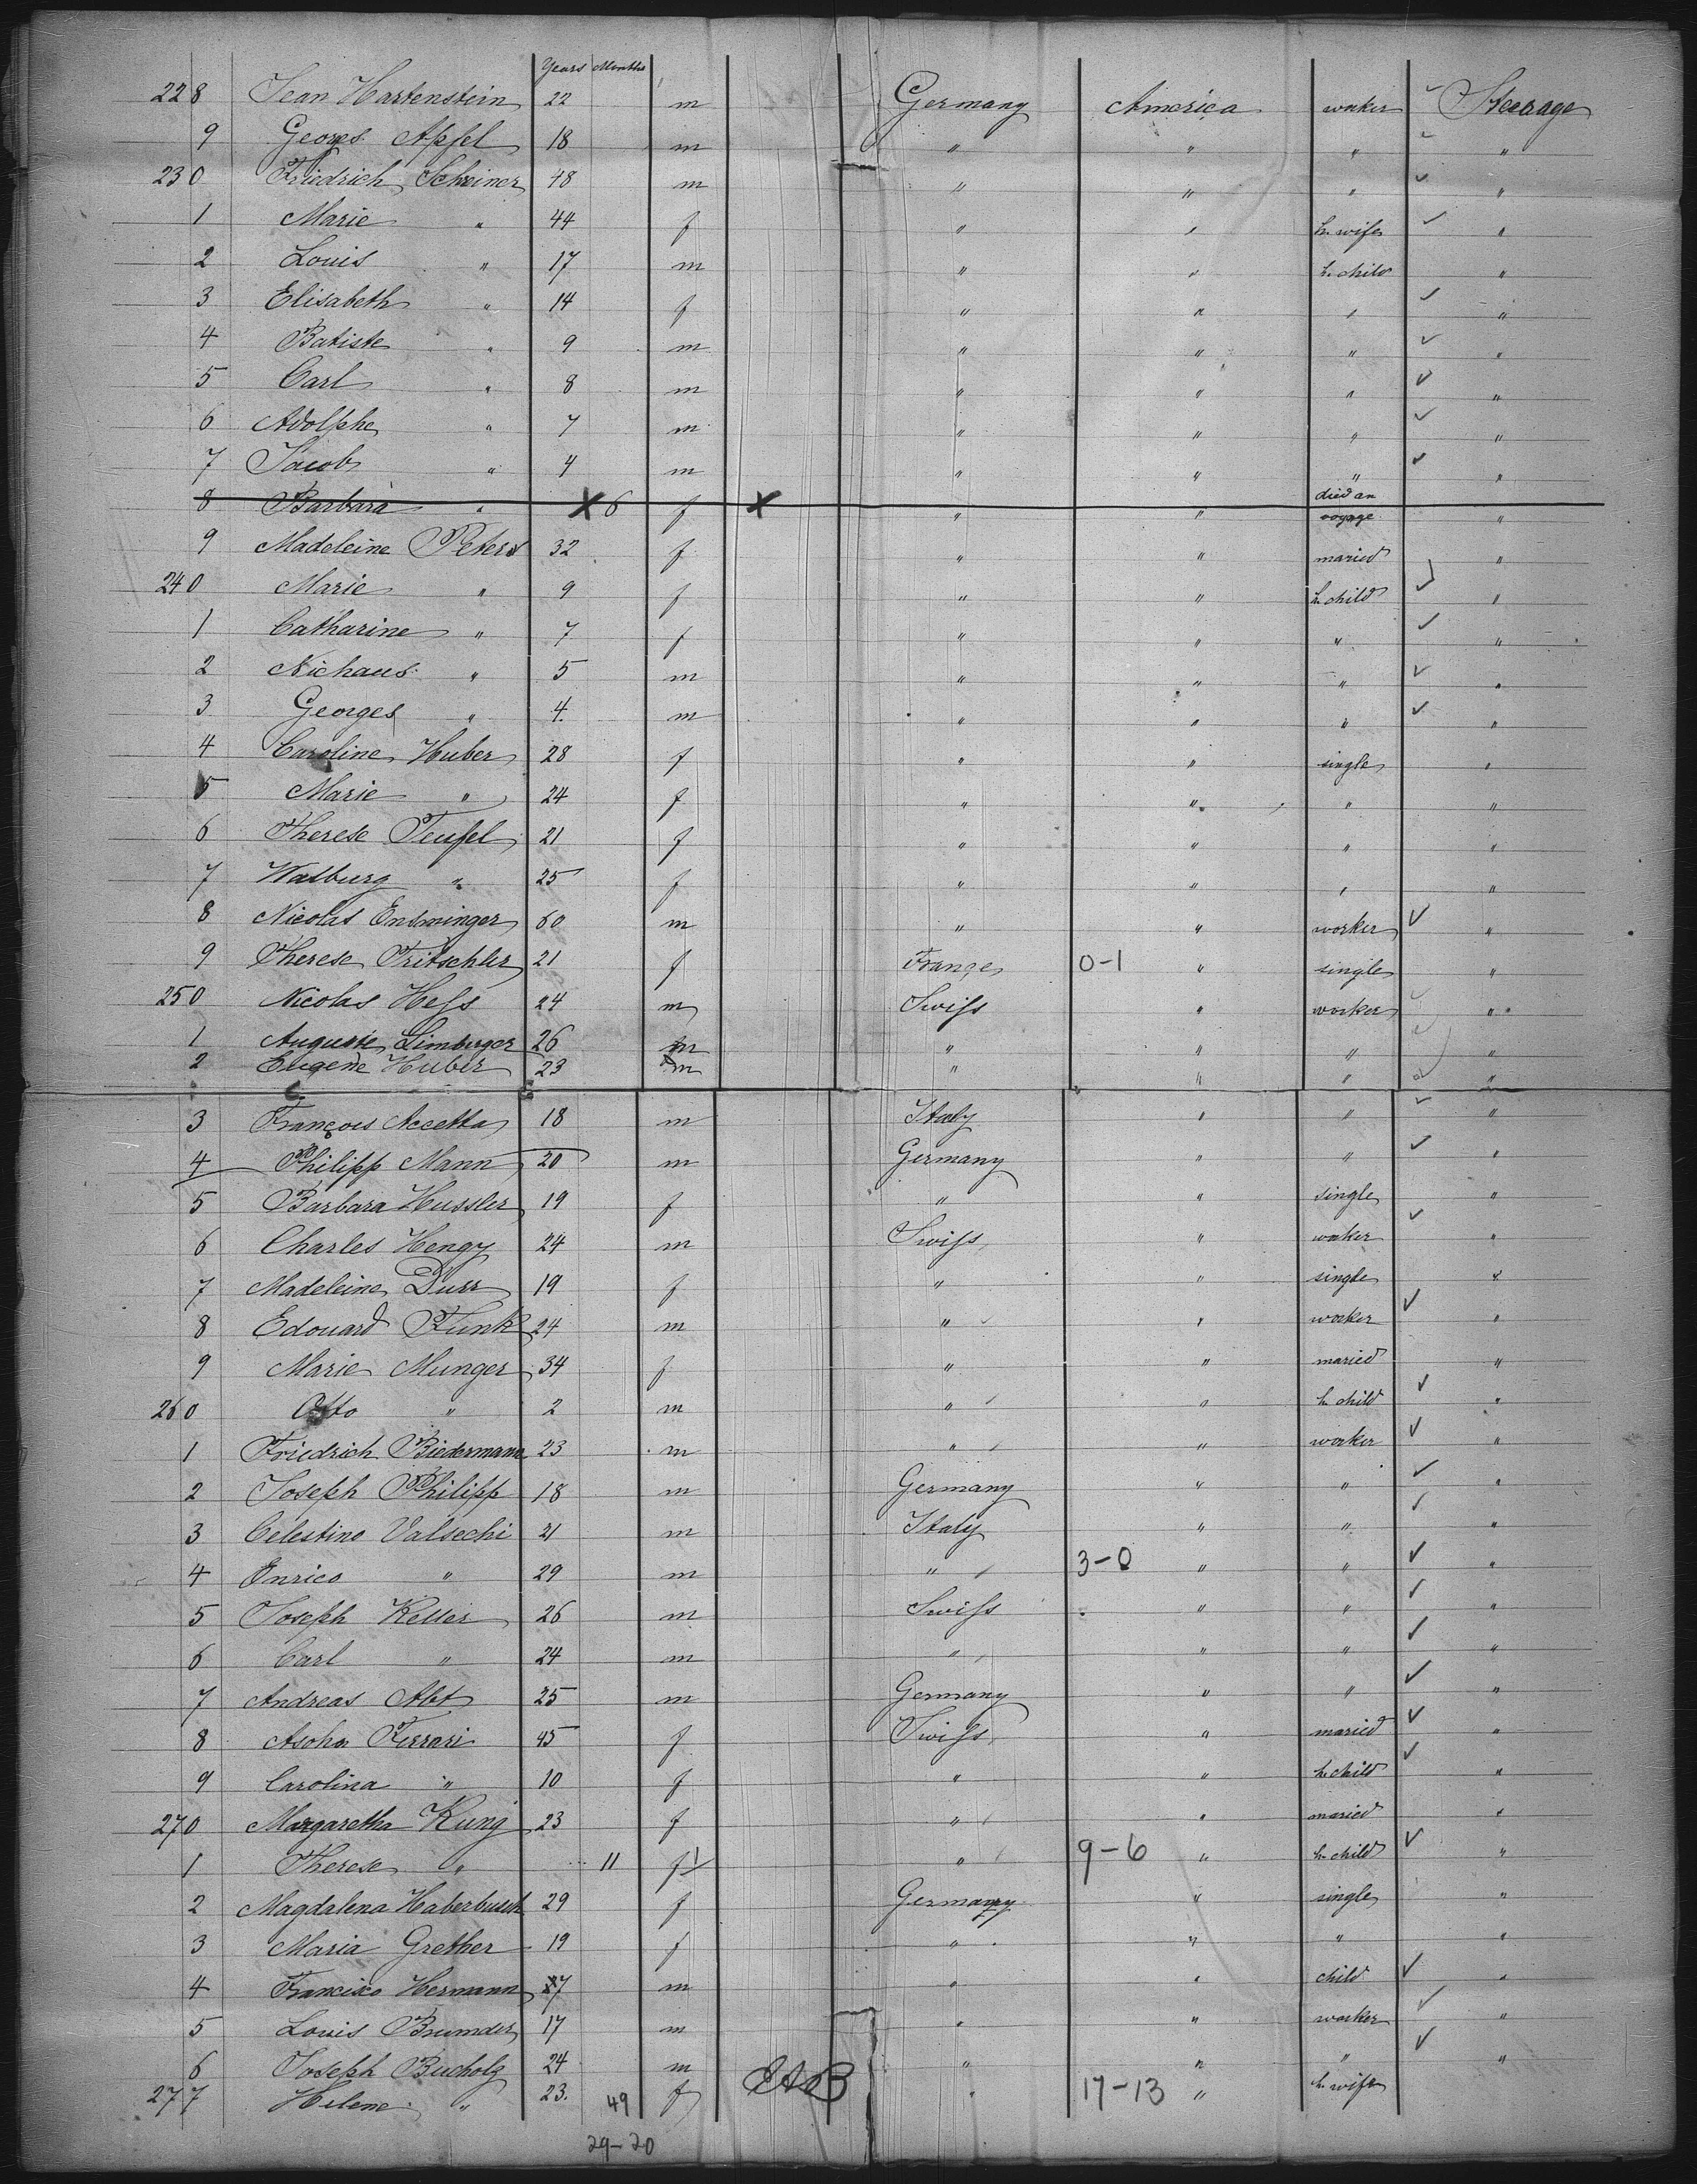 Years Months
228 Jean Hartenstein 22 m Germany America worker Steerage
9 Georges Apfel 18 m " " " "
230 Friedrich Schreiner 48 m " " " "
1 Marie " 44 f " " h. wife "
2 Louis " 17 m " " h. child "
3 Elisabeth " 14 f " " " "
4 Batiste " 9 m " " " "
5 Carl " 8 m " " " "
6 Adolphe " 7 m " " " "
7 Jacob " 4 m " " " "
8 Barbara " X 6 f X " " died an voyage "
9 Madeleine Peters 32 f " " maried "
240 Marie " 9 f " " h. child "
1 Catharine " 7 f " " " "
2 Nichaus " 5 m " " " "
3 Georges " 4 m " " " "
4 Caroline Huber 28 f " " single "
5 Marie " 24 f " " " "
6 Therese Teufel 21 f " " " "
7 Walburg " 25 f " " " "
8 Nicolas Ensminger 60 m " " worker "
9 Therese Fritschler 21 f France 0-1 " single "
250 Nicolas Heſs 24 m Swiſs " worker "
1 Auguste Limburger 26 m " " " "
2 Eugene Huber 23 m " " " "
3 François Accetta 18 m Italy " " "
4 Philipp Mann 20 m Germany " " "
5 Barbara Hussler 19 f " " single "
6 Charles Hengy 24 m Swiſs " worker "
7 Madeleine Durr 19 f " " single "
8 Edouard Funk 24 m " " worker "
9 Marie Munger 34 f " " maried "
260 Otto " 2 m " " h. child "
1 Friedrich Biedermann 23 m " " worker "
2 Joseph Philipp 18 m Germany " " "
3 Celestino Valsechi 21 m Italy " " "
4 Enrico " 29 m " 3-0 " " "
5 Joseph Keller 26 m Swiſs " " "
6 Carl " 24 m " " " "
7 Andreas Abt 25 m Germany " " "
8 Ferrari 45 f Swiſs " maried "
9 Carolina " 10 f " " h. child "
270 Margaretha Kung 23 f " " maried "
1 Therese " 11 f " 9-6 " h. child "
2 Magdalena Haberbusch 29 f Germany " single "
3 Maria Grether 19 f " " " "
4 Francisco Hermann 7 m " " child "
5 Louis Brumder 17 m " " worker "
6 Joseph Bucholz 24 m " " " "
277 Helene " 23. 49 f " 17-13 " h. wife
29-20